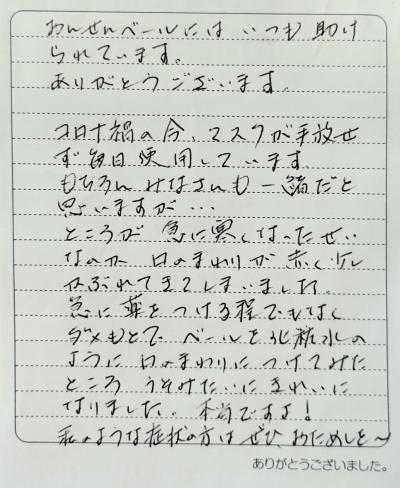 おんせんベールには いつも 助け
られています。
ありがとうございます。
コロナ禍の今、マスクが手放せ
ず毎日使用しています。
もちろん みなさんも 一緒だと
思いますが…
ところが 急に寒くなったせい
なのか 口のまわりが 赤く少し
かぶれてきてしまいました。
急に 薬をつける程でもなく
ダメもとで ベールを化粧水の
ように 口のまわりに つけてみた
ところ うそみたいに きれいに
なりました。 本当ですよ!
私のような症状の方は ぜひ おためしを〜
ありがとうございました。